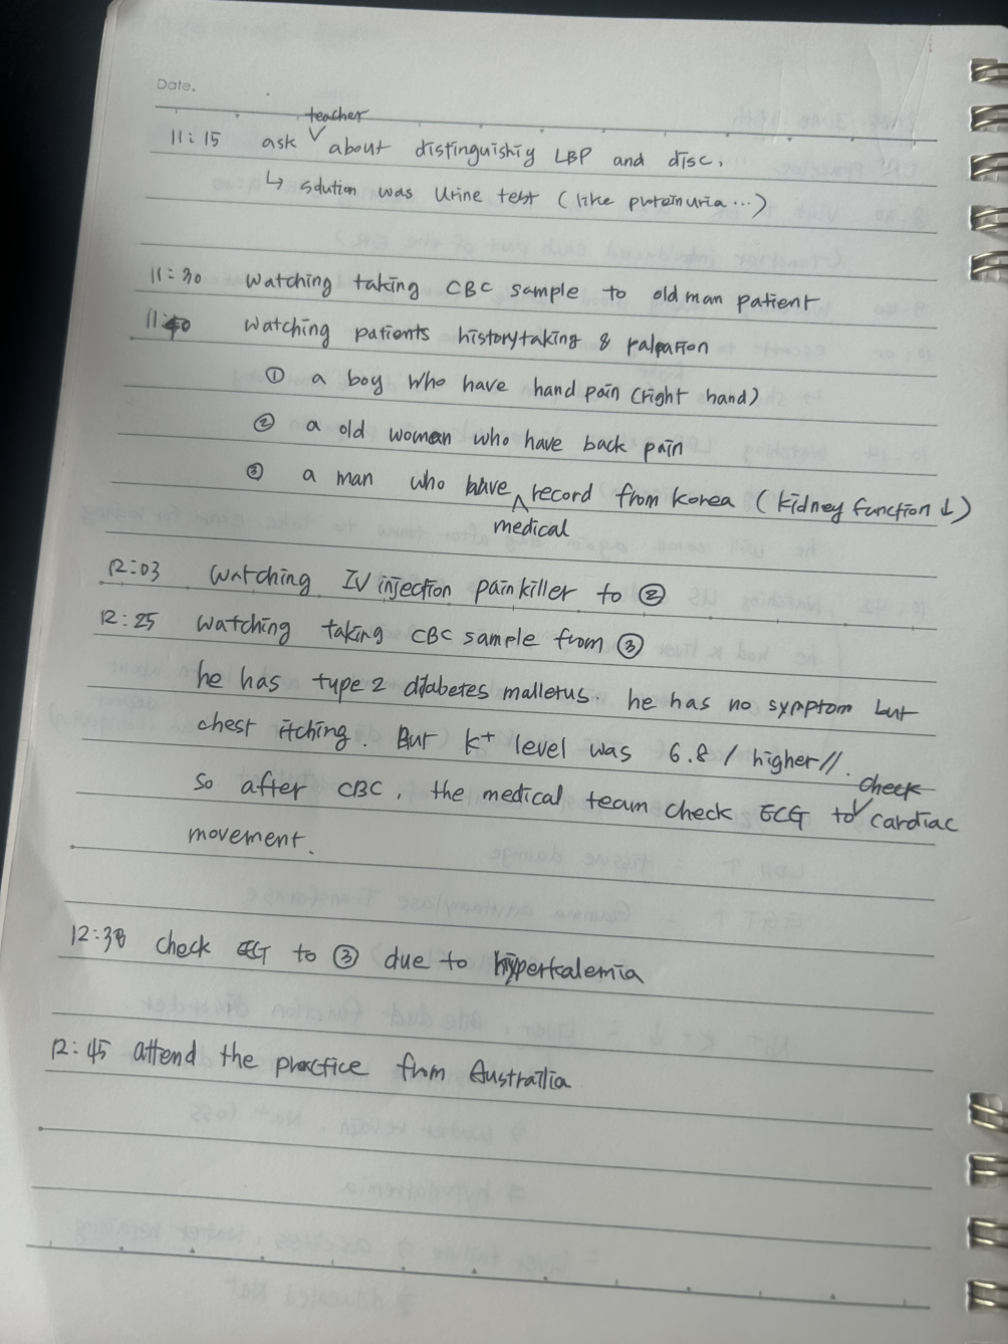 Date.
teacher
11:15 ask ∨ about distinguishiy LBP and disc.
↳ solution was Urine test (like proteinuria...)
11:30 Watching taking CBC sample to old man patient
11:40 Watching patients historytaking & palpation
① a boy who have hand pain (right hand)
② a old woman who have back pain
③ a man who have ∧ record from Korea (kidney function ↓)
medical
12:03 Watching IV injection painkiller to ②
12:25 Watching taking CBC sample from ③
he has type 2 diabetes malletus. he has no symptom but
chest itching. But K+ level was 6.8 / higher//.
check
so after CBC, the medical team check ECG to ∨ cardiac
movement.
12:38 check ECG to ③ due to hyperkalemia
12:45 attend the practice from Australia